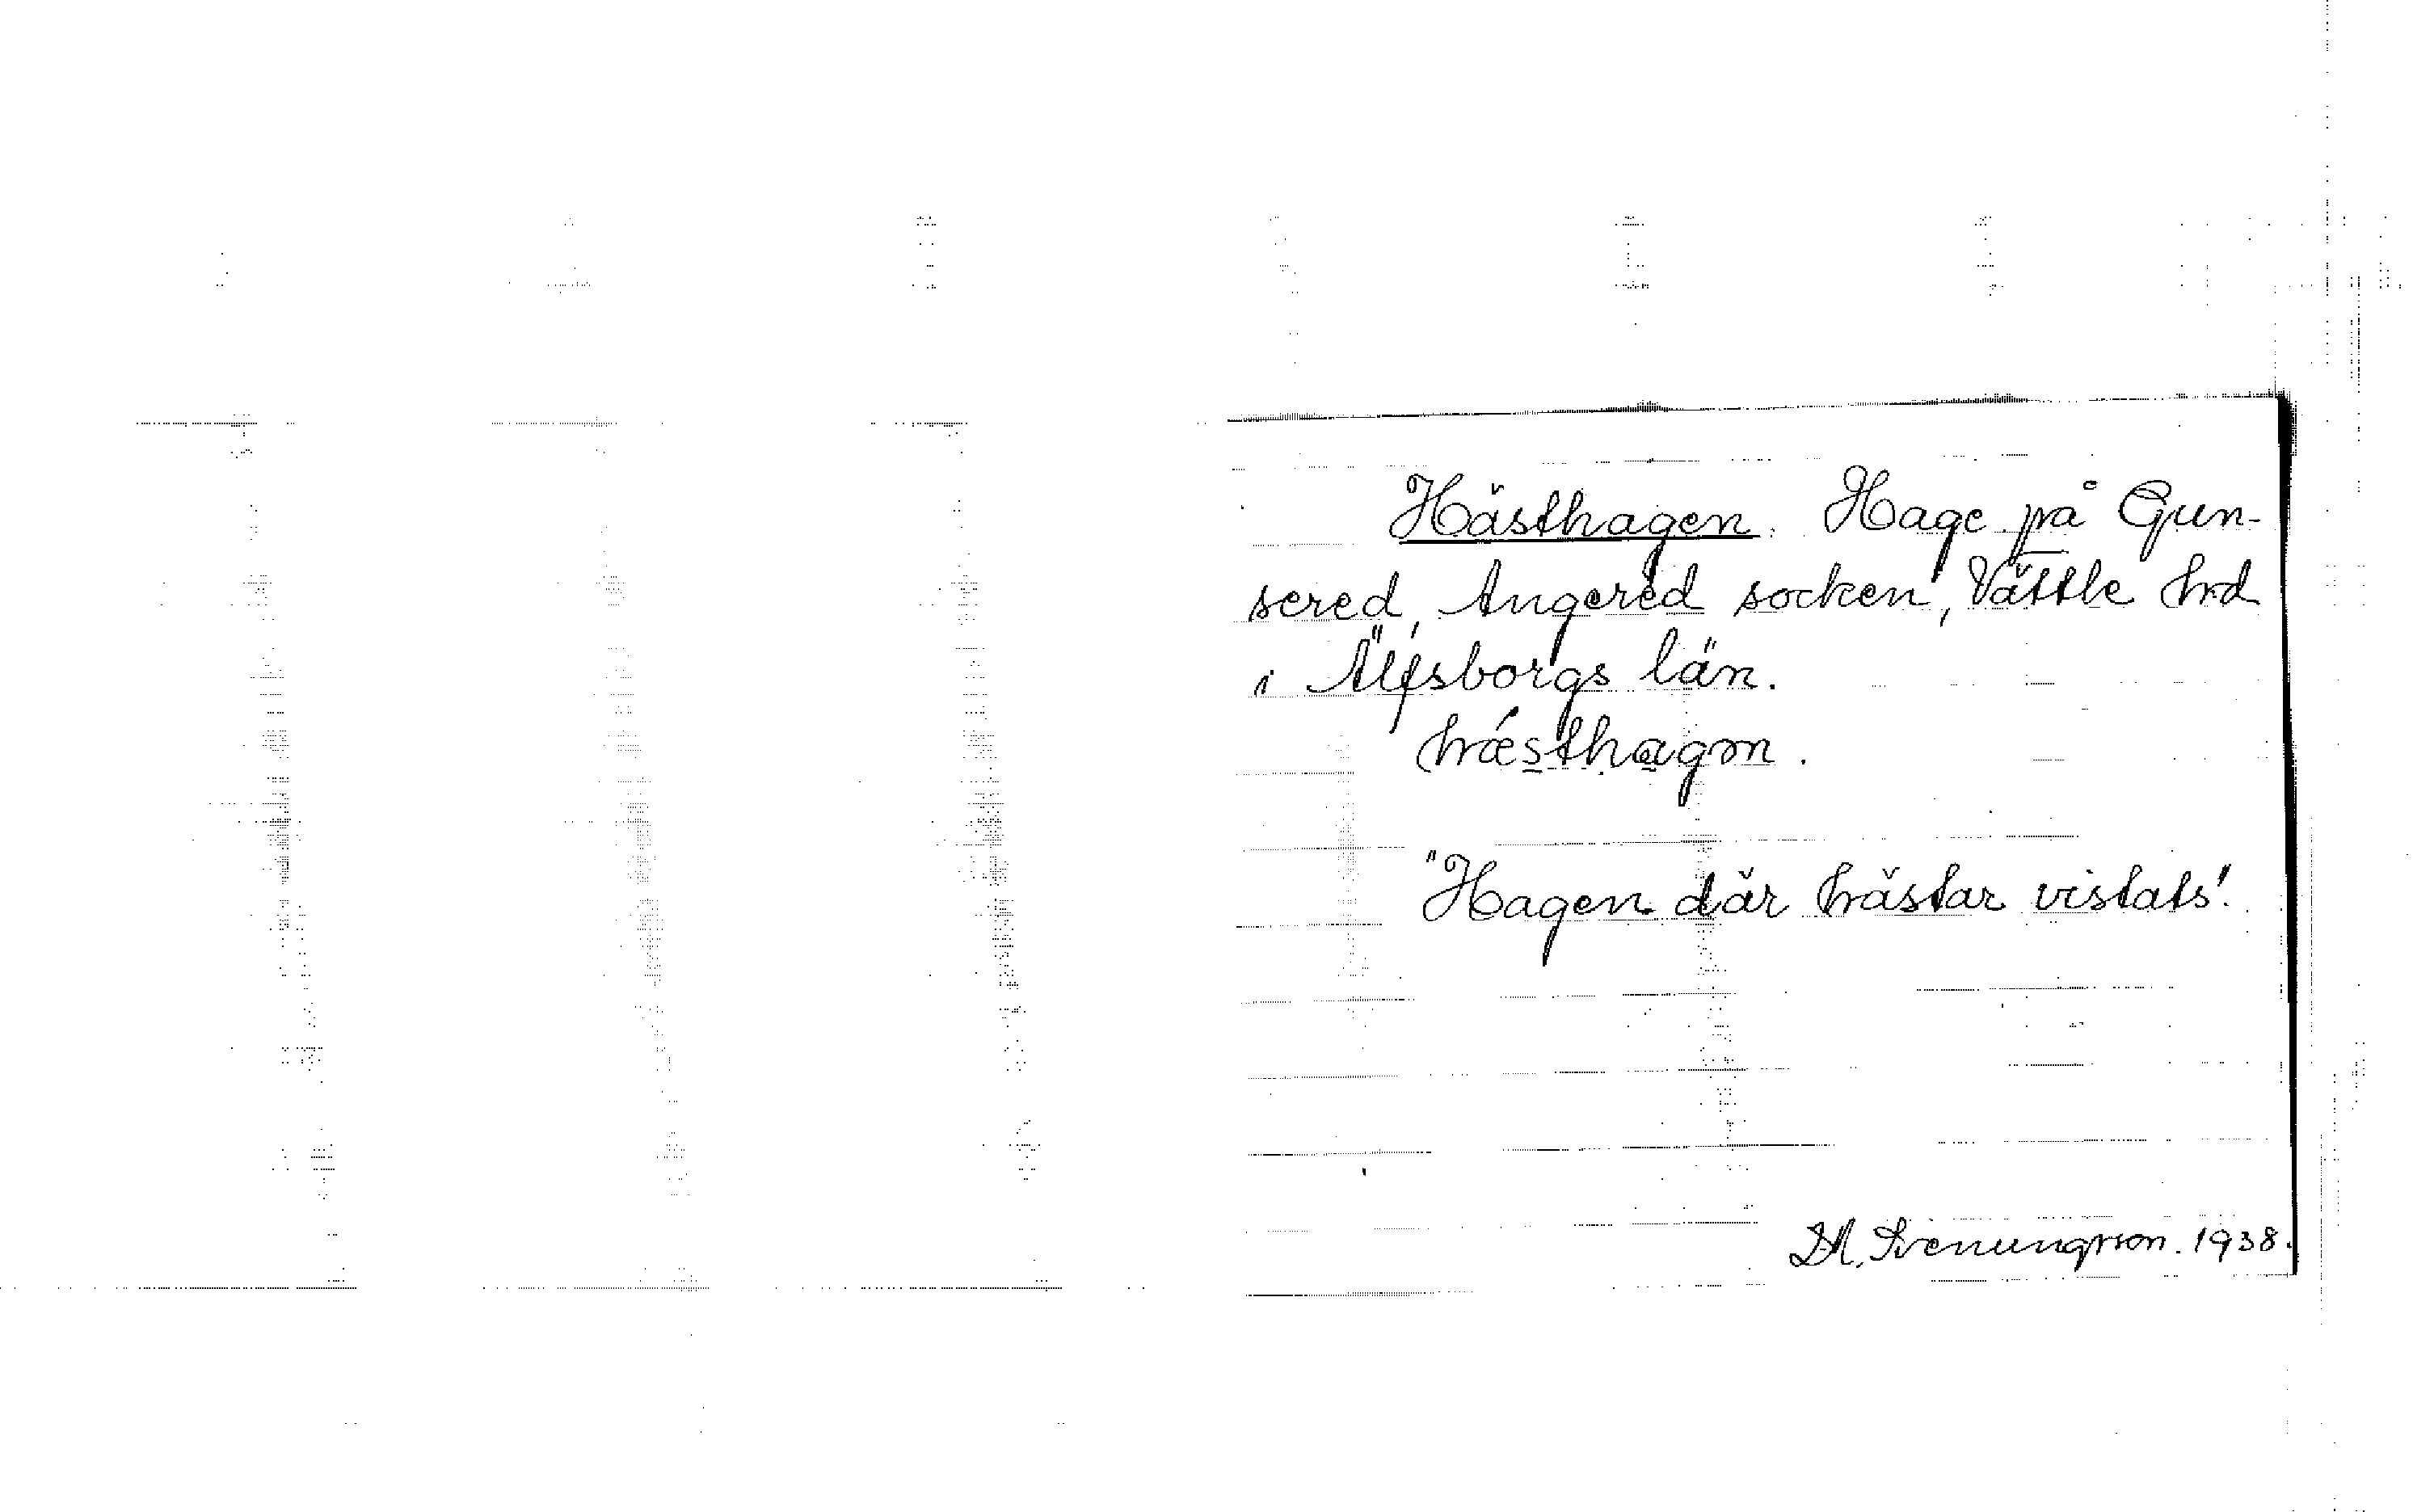 Hästhagen. Hage på Gun-
sered, Angered socken, Vättle hrd
i Älfsborgs län.
hæsthagən.
"Hagen där hästar vistats".
D.A. Svenungsson. 1938.